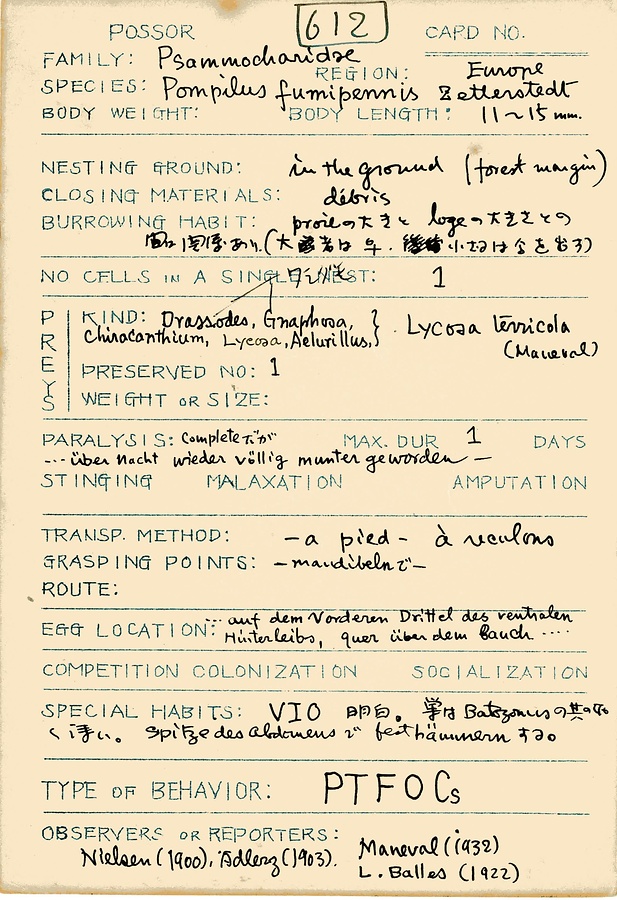 612
POSSOR CARD NO.
FAMILY: Psammocharidae
REGION: Europe
SPECIES: Pompilus fumipennis Zetterstedt
BODY WEIGHT: BODY LENGTH: 11~15 mm.
NESTING GROUND: in the ground (forest margin)
CLOSING MATERIALS: débris
BURROWING HABIT: proieの大きさと logeの大きさとの
間に関係あり。(大 者は ♀. 小さなは ♂を出す)
NO CELLS IN A SINGLE NEST: 1
KIND: Drassodes, Gnaphosa,
Chiracanthium, Lycosa, Aelurillus, } . Lycosa terricola
(Maneval)
PREYS
PRESERVED NO: 1
WEIGHT OR SIZE:
PARALYSIS: Completeだが MAX. DUR 1 DAYS
... über Nacht wieder völlig munter geworden —
STINGING MALAXATION AMPUTATION
TRANSP. METHOD: - a pied - à reculons
GRASPING POINTS: - mandibelnで -
ROUTE:
EGG LOCATION: ... auf dem Vorderen Drittel des ventralen
Hinterleibs, quer über dem Bauch ....
COMPETITION COLONIZATION SOCIALIZATION
SPECIAL HABITS: VIO 明白。 巣は Batozonusの其の
く浅い。 Spitze des Abdomensで festhämmernする。
TYPE OF BEHAVIOR: PTFOCs
OBSERVERS OR REPORTERS:
Nielsen (1900), Adlerz (1903). Maneval (1932)
L. Balles (1922)